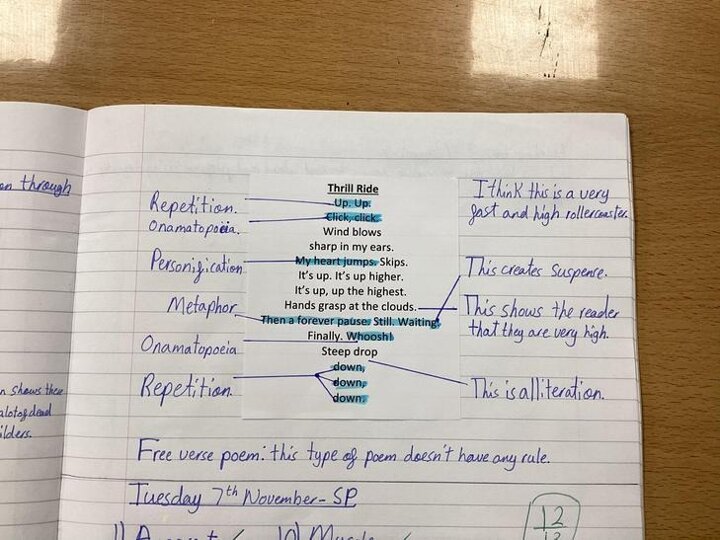 on through
Repetition.
Onamatopoeia.
Personification
Metaphor
Onamatopoeia
Repetition.
Thrill Ride
Up. Up.
Click, click.
Wind blows
sharp in my ears.
My heart jumps. Skips.
It's up. It's up higher.
It's up, up the highest.
Hands grasp at the clouds.
Then a forever pause. Still. Waiting.
Finally. Whoosh!
Steep drop
down,
down,
down.
I think this is a very
fast and high rollercoaster.
This creates suspense.
This shows the reader
that they are very high.
This is alliteration.
shows there
a lot of dead
ilders.
Free verse poem: this type of poem doesn't have any rule.
Tuesday 7th November - SP
12